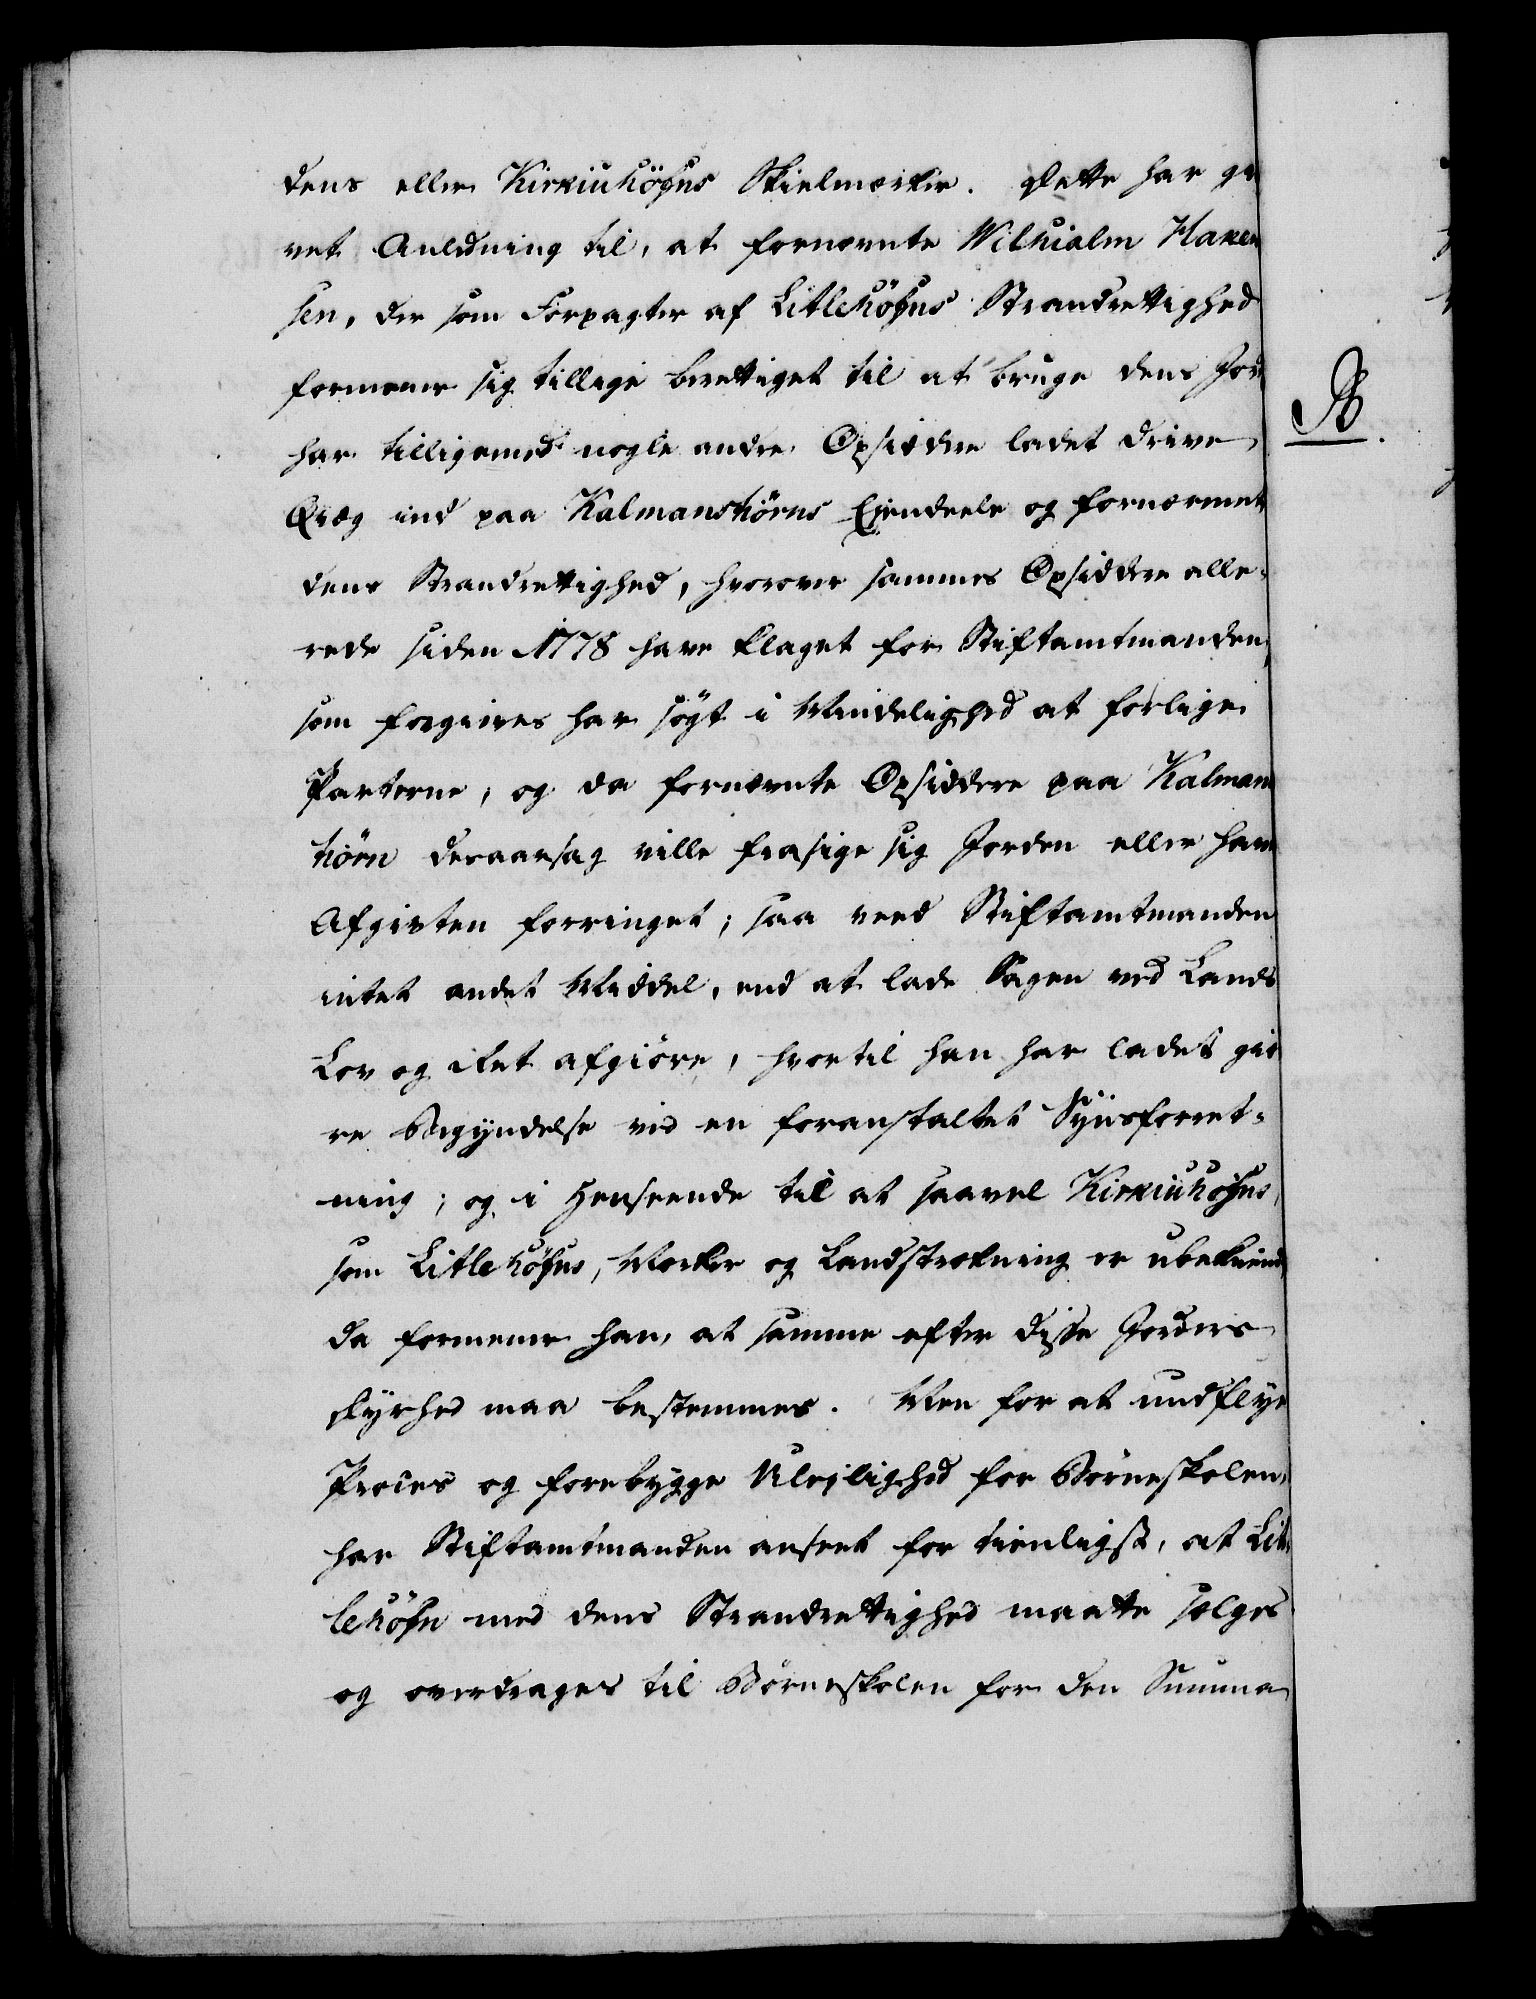 dens eller Kirkiuhöfns Skielmærker. Dette har gi
vet Anledning til, at fornævnte Wilhialm Haken
sen, der som Forpagter af Litlehöfns Strandrettighed
formener sig tillige berettiget til at bruge dens Jord
har tilligemed nogle andre Opsiddere ladet drive
Qvæg ind paa Kalmanshörns Eiendeele og fornærmet
dens Strandrettighed, hvorover sammes Opsiddere alle-
rede siden 1778 have klaget for Stiftamtmanden,
som forgieves har søgt i Mindelighed at forlige
Parterne, og da fornævnte Opsiddere paa Kalmans
hörn desaarsag ville frasige sig Jorden eller have
Afgivten forringet; saa veed Stiftamtmanden
intet andet Middel, end at lade Sagen ved Lands
Lov og Ret afgiöre, hvortil han har ladet giö
re Begyndelse ved en foranstaltet Synsforret-
ning; og i Henseende til at saavel Kirkiuhöfns,
som Litlehöfns, Mærker og Landstrækning er ubekiendt
da formener han, at samme efter disse Jorders
Dyrhed maa bestemmes. Men for at undflye
Proces og forebygge Uleilighed for Börneskolen,
har Stiftamtmanden anseet for tienligst, at Lit-
lehöfn med dens Strandrettighed maatte sælges
og overdrages til Börneskolen for den Summa